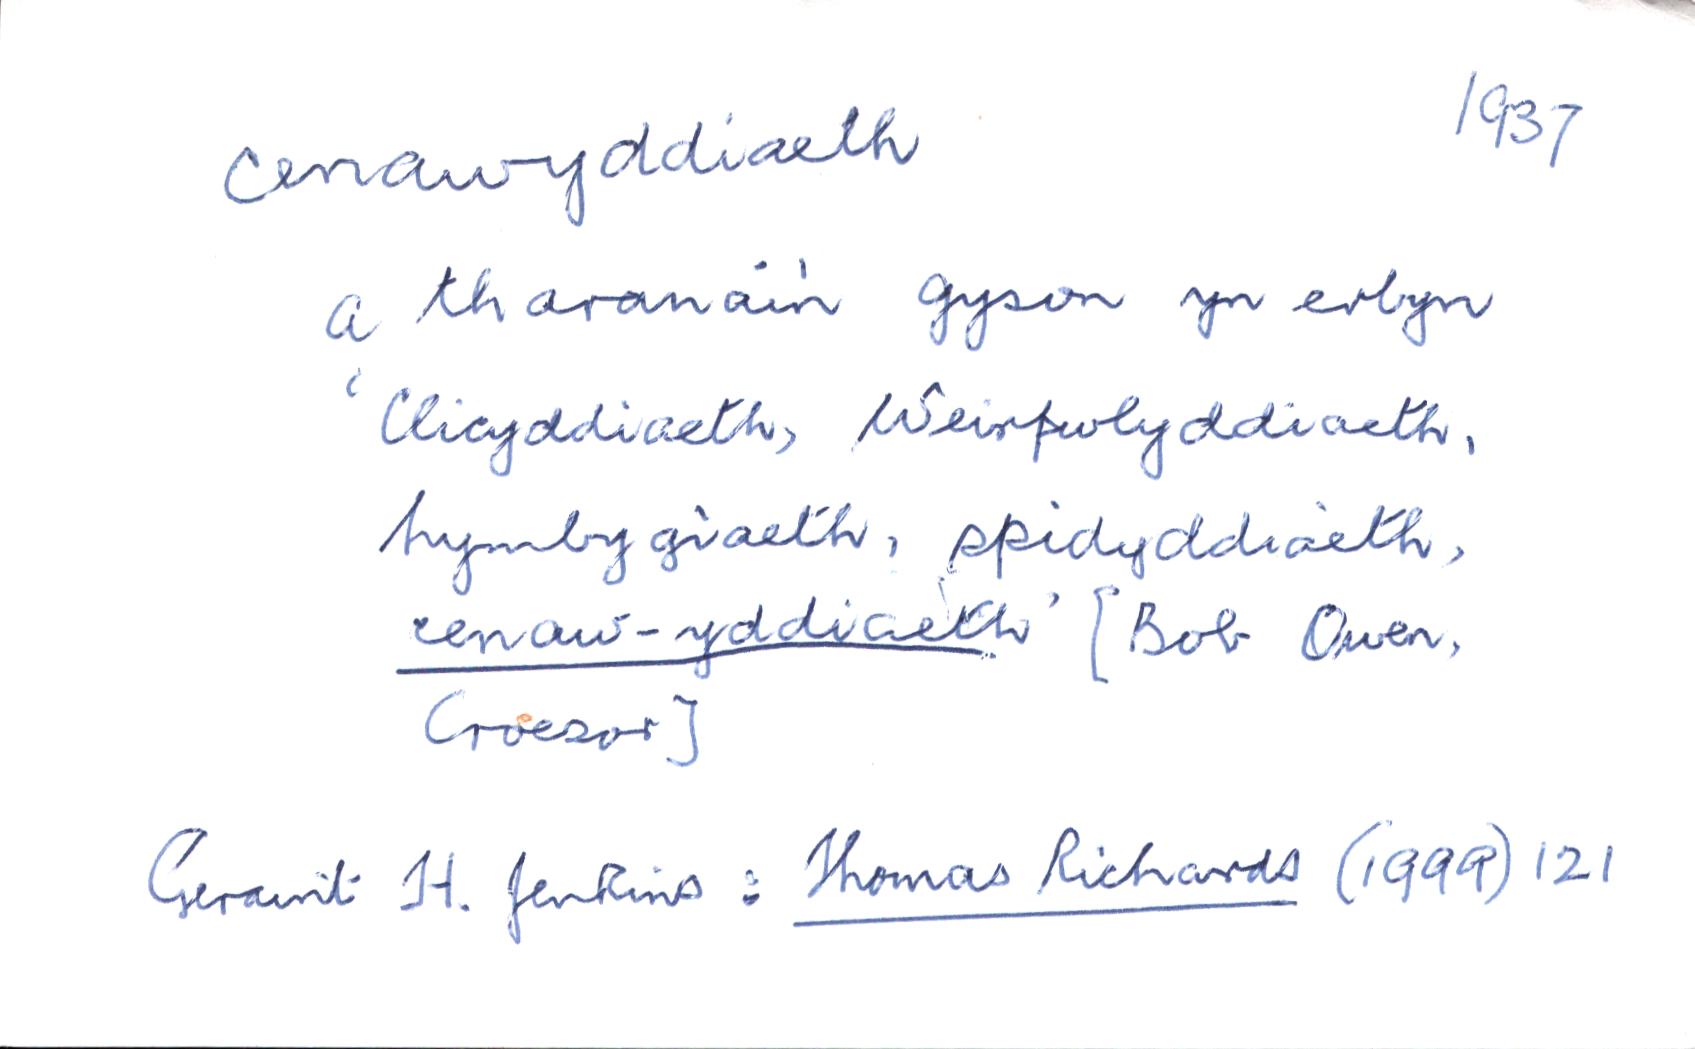 cenawyddiaeth 1937
a tharanáin gyson yn erbyn
'Clicyddiaeth, Weirpwlyddiaeth,
hymbygiaeth, spidyddiaeth,
cenaw-yddiaeth' [Bob Owen,
Croesor]
Geraint H. Jenkins : Thomas Richards (1999) 121